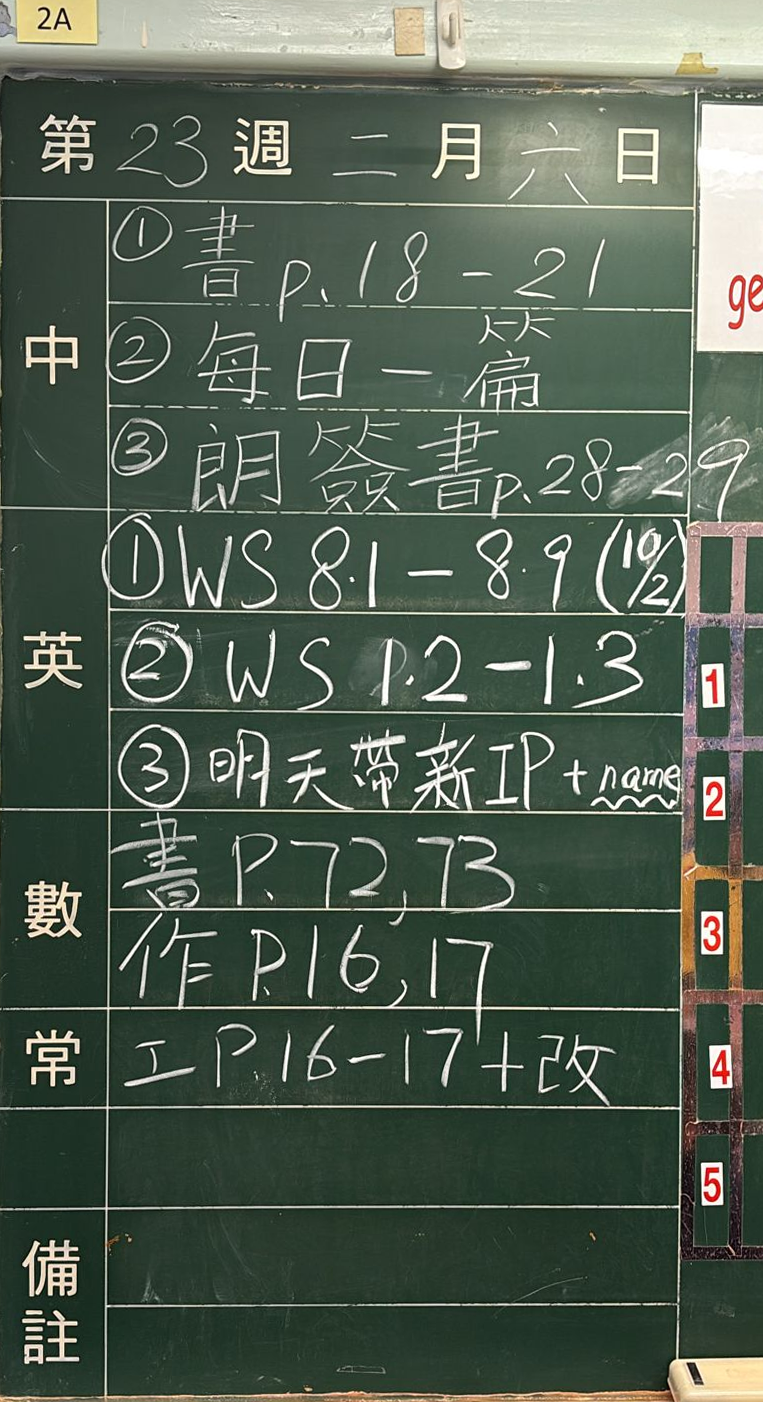 2A
第23週二月六日
中
①書p.18-21
②每日一篇
③朗簽書p.28-29
英
①WS 8.1-8.9(10/2)
②WS 1.2-1.3
③明天帶新IP+name
數
書P.72,73
作P.16,17
常
工P16-17+改
備註
ge
1
2
3
4
5